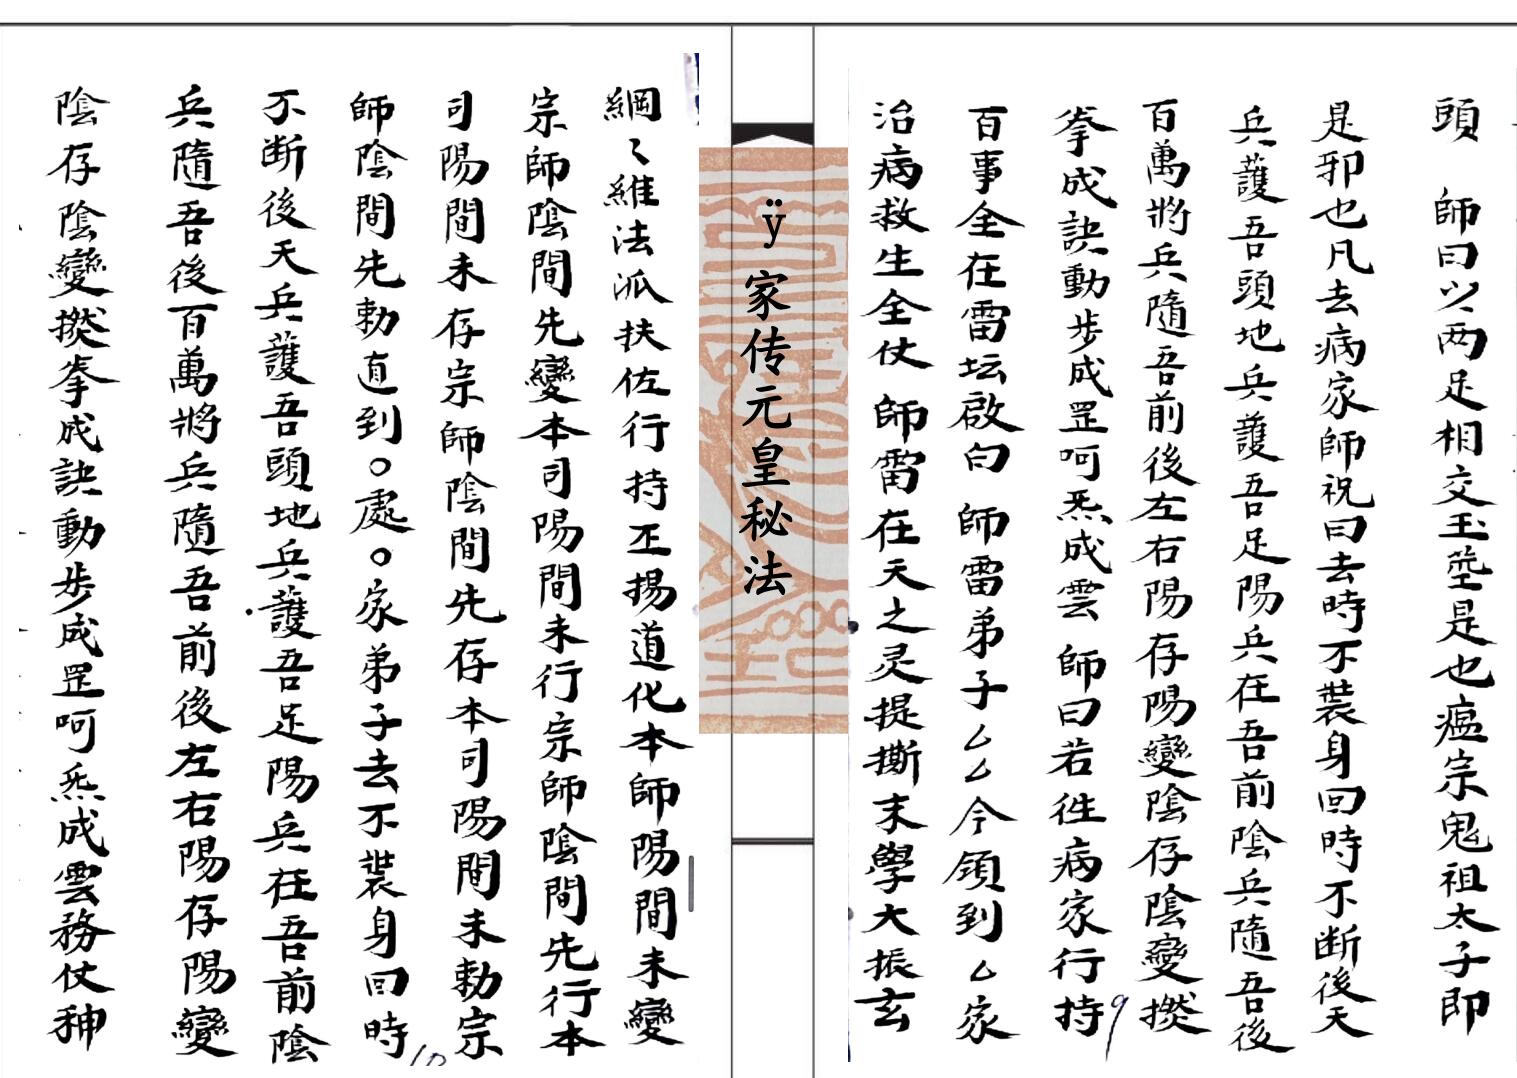 頭 師曰丷两足相交玉莖是也瘟宗鬼祖太子即
是邪也凡去病家師祝曰去時不裝身回時不断後天
兵護吾頭地兵護吾足陽兵在吾前陰兵隨吾後
百萬將兵隨吾前後左右陽存陽變陰存陰變撚
拳成訣動步成罡呵炁成雲 師曰若徃病家行持
百事全在雷坛啟白 師雷弟子厶厶今領到厶家
治病救生全仗 師雷在天之灵提撕末學大振玄
9
ÿ家传元皇秘法
綱〻維法派扶佐行持丕揚道化本師陽間未變
宗師陰間先變本司陽間未行宗師陰間先行本
司陽間未存宗師陰間先存本司陽間未勅宗
師陰間先勅直到○處○家弟子去不裝身回時
不断後天兵護吾頭地兵護吾足陽兵在吾前陰
兵隨吾後百萬將兵隨吾前後左右陽存陽變
陰存陰變撚拳成訣動步成罡呵炁成雲務仗神
10